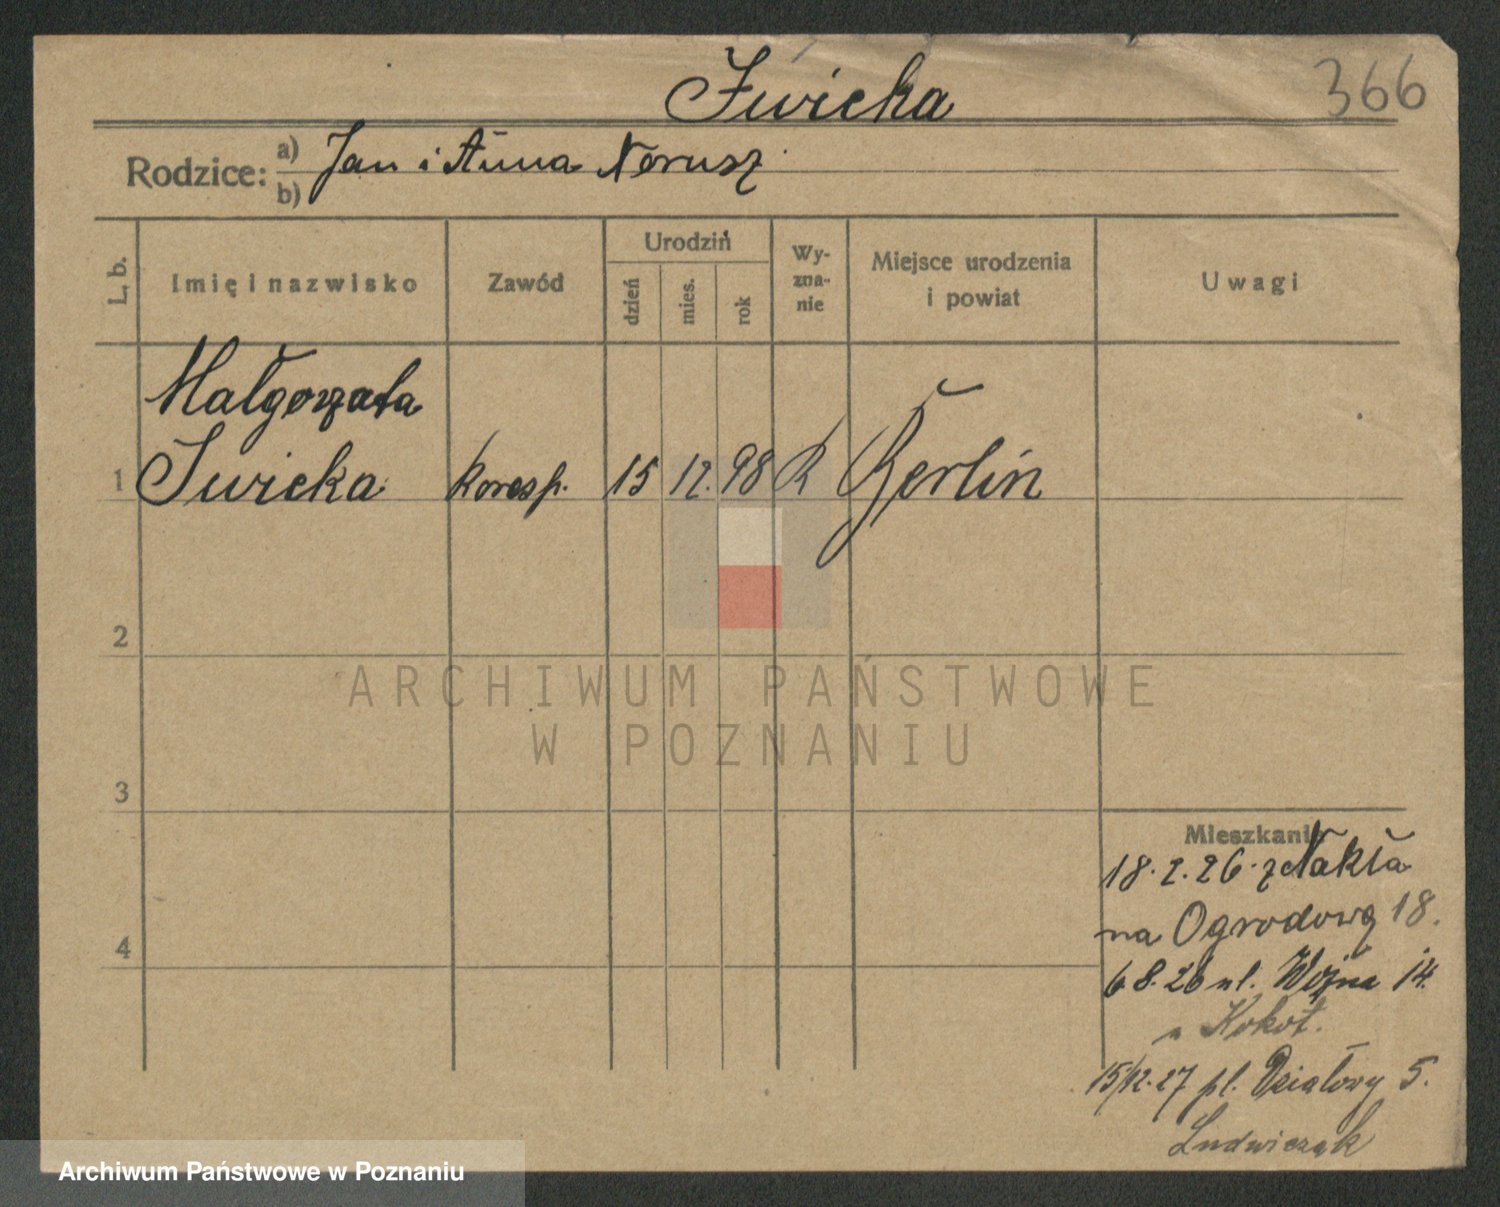 Iwicka
366
Rodzice: a) Jan i Anna Nerusz
b)
L. b.
Imię i nazwisko
Zawód
Urodzin
dzień
mies.
rok
Wy-
zna-
nie
Miejsce urodzenia
i powiat
Uwagi
Małgorzata
1 Iwicka koresp. 15 12. 98 R Berlin
2
ARCHIWUM PAŃSTWOWE
W POZNANIU
3
4
Mieszkanie
18.2.26. z Nakła
na Ogrodową 18.
6 8.26 ul. Wojna 14.
Kokot.
15/12.27 pl. Działowy 5.
Ludwiczak
Archiwum Państwowe w Poznaniu